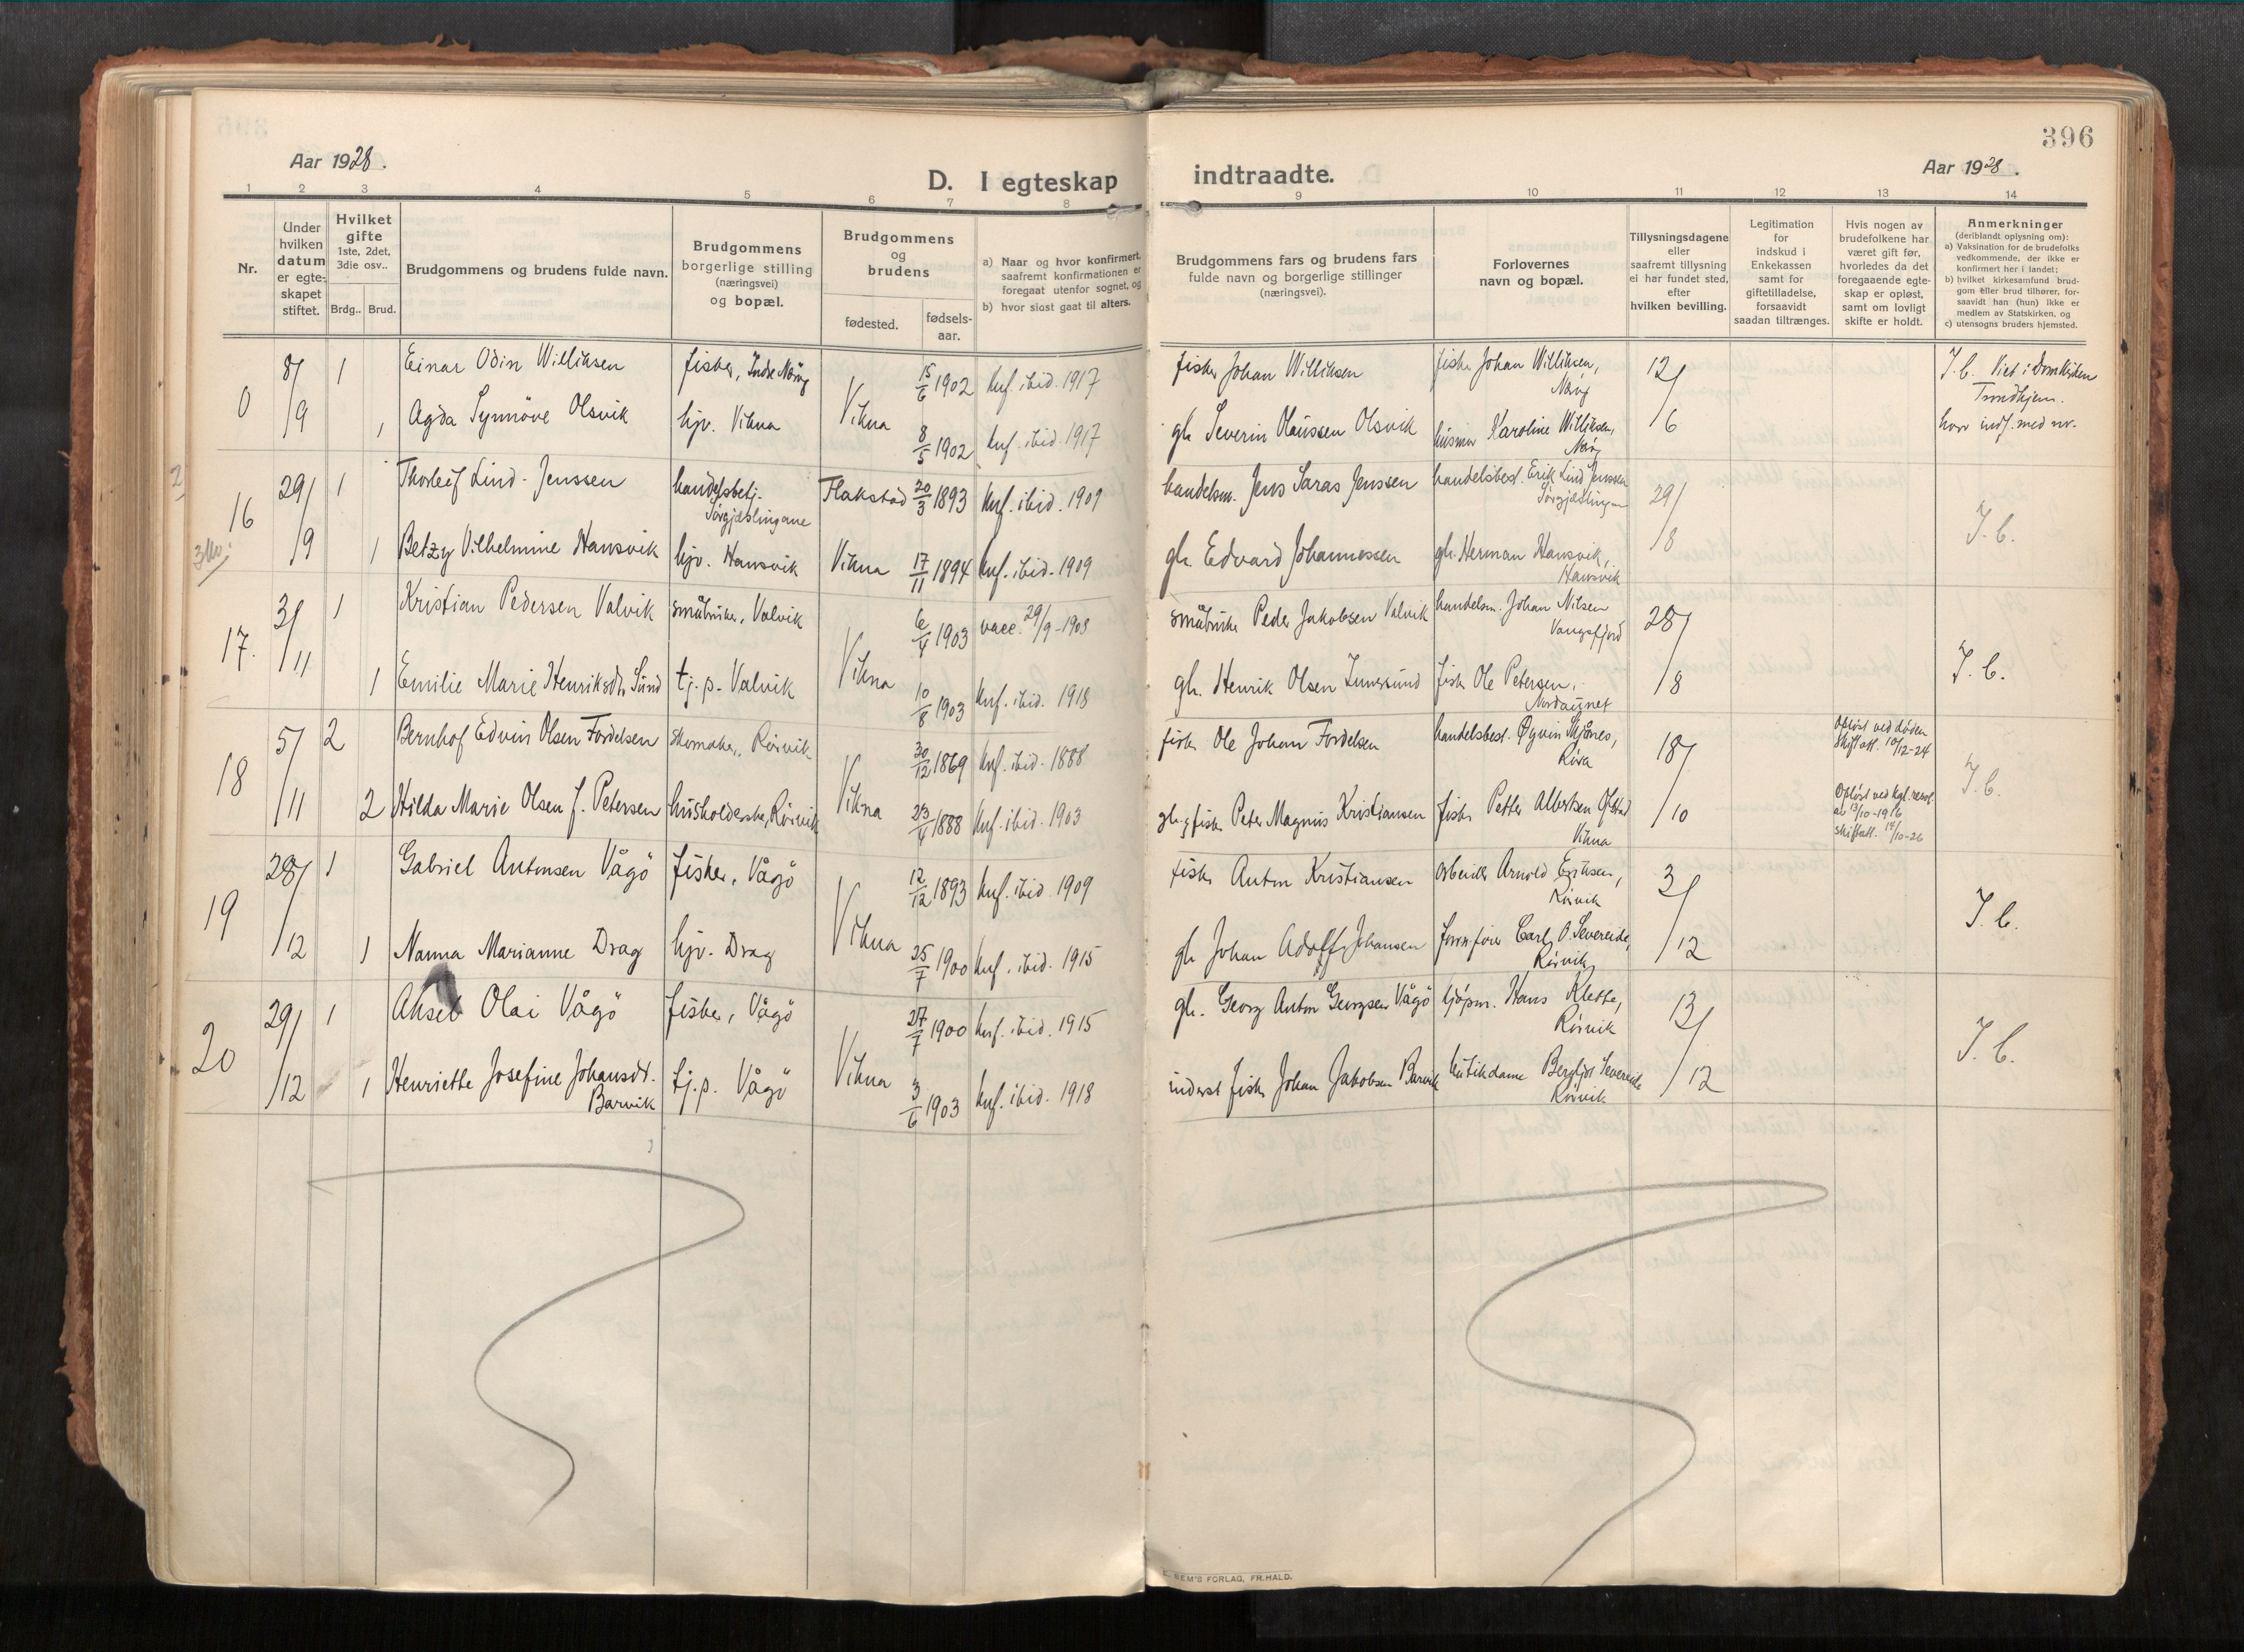 396
Aar 1928.
Aar 1928.
D. I egteskap
indtraadte.
1 2 3 4 5 6 7 8
9 10 11 12 13 14
Nr.
Under
hvilken
datum
er egte-
skapet
stiftet.
Hvilket
gifte
1ste, 2det,
3die osv..
Brdg.. Brud.
Brudgommens og brudens fulde navn.
Brudgommens
borgerlige stilling
(næringsvei)
og bopæl.
Brudgommens
og
brudens
fødested.
fødsels-
aar.
a) Naar og hvor konfirmert,
saafremt konfirmationen er
foregaat utenfor sognet, og
b) hvor sidst gaat til alters.
Brudgommens fars og brudens fars
fulde navn og borgerlige stillinger
(næringsvei).
Forlovernes
navn og bopæl.
Tillysningsdagene
eller
saafremt tillysning
ei har fundet sted,
efter
hvilken bevilling.
Legitimation
for
indskud i
Enkekassen
samt for
giftetilladelse,
forsaavidt
saadan tiltrænges.
Hvis nogen av
brudefolkene har
været gift før,
hvorledes da det
foregaaende egte-
skap er opløst,
samt om lovligt
skifte er holdt.
Anmerkninger
(deriblandt oplysning om):
a) Vaksination for de brudefolks
vedkommende, der ikke er
konfirmert her i landet;
b) hvilket kirkesamfund brud-
gom eller brud tilhører, for-
saavidt han (hun) ikke er
medlem av Statskirken, og
c) utensogns bruders hjemsted.
0 8/9 1 Einar Odin Williksen fisker, Indre Nærøy Vikna 15/6 1902 Knf. ibid. 1917 fisker Johan Williksen fisker Johan Williksen, 12/6 I. b. Viet i Domkirken
Nærøy Trondhjem.
1 Agda Synnöve Olsvik hjv. Vikna 8/5 1902 Knf. ibid. 1917 gb. Severin Olaussen Olsvik husmor Karoline Williksen,
Nærøy
16 29/9 1 Thorleif Lind-Jenssen handelsbetj. Flakstad 20/3 1893 Knf. ibid. 1909 handelsm. Jens Saras Jenssen handelsbest. Erik Lind Jenssen 29/8 I. b.
Sørgjæslingane Sørgjæslingan
1 Betzy Vilhelmine Hansvik hjv. Hansvik Vikna 17/11 1894 Knf. ibid. 1909 gb. Edvard Johannessen gb. Herman Hansvik,
Hansvik
17. 3/11 1 Kristian Pedersen Valvik småbruker, Valvik Vikna 6/4 1903 vacc. 29/9-1908 småbruker Peder Jakobsen Valvik handelsm. Johan Nilsen 28/8 I. b.
1 Emilie Marie Henriksdtr Sund tj.p. Valvik 10/8 1903 Knf. ibid. 1918 gb. Henrik Olsen fisker Ole Petersen,
18 5/11 2 Bernhof Edvin Olsen Fordelsen skomaker, Rörvik Vikna 30/12 1869 Knf. ibid. 1888 fisker Ole Johan Fordelsen handelsbest. 18/10 Opløst ved døden I. b.
Skiftatt. 10/12-24
2 Hilda Marie Olsen f. Petersen husholderske, Rörvik 23/4 1888 Knf. ibid. 1903 gb. & fisker Peter Magnus Kristiansen fisker Petter Albertsen Ofstad Opløst ved kgl. resol.
Vikna av 13/10-1916
skiftatt. 17/10-26
19 28/12 1 Gabriel Antonsen Vågö fisker, Vågö Vikna 12/12 1893 Knf. ibid. 1909 fisker Anton Kristiansen arbeider Arnold Eriksen, 3/12 I. b.
Rörvik
1 Nanna Marianne Drag hjv. Drag 25/7 1900 Knf. ibid. 1915 gb. Johan Adolf Johansen Carl O. Severeide,
Rörvik
20 29/12 1 Aksel Olai Vågö fisker, Vågö Vikna 27/7 1900 Knf. ibid. 1915 gb. Georg Anton Georgsen Vågö kjöpm. Hans Klette, 13/12 I. b.
Rörvik
1 Henriette Josefine Johansdt. tj.p. Vågö 3/6 1903 Knf. ibid. 1918 inderst fisker Johan Jakobsen Barvik butikdame Bergljot Severeide
Barvik Rörvik
SEM'S FORLAG, FR.HALD.